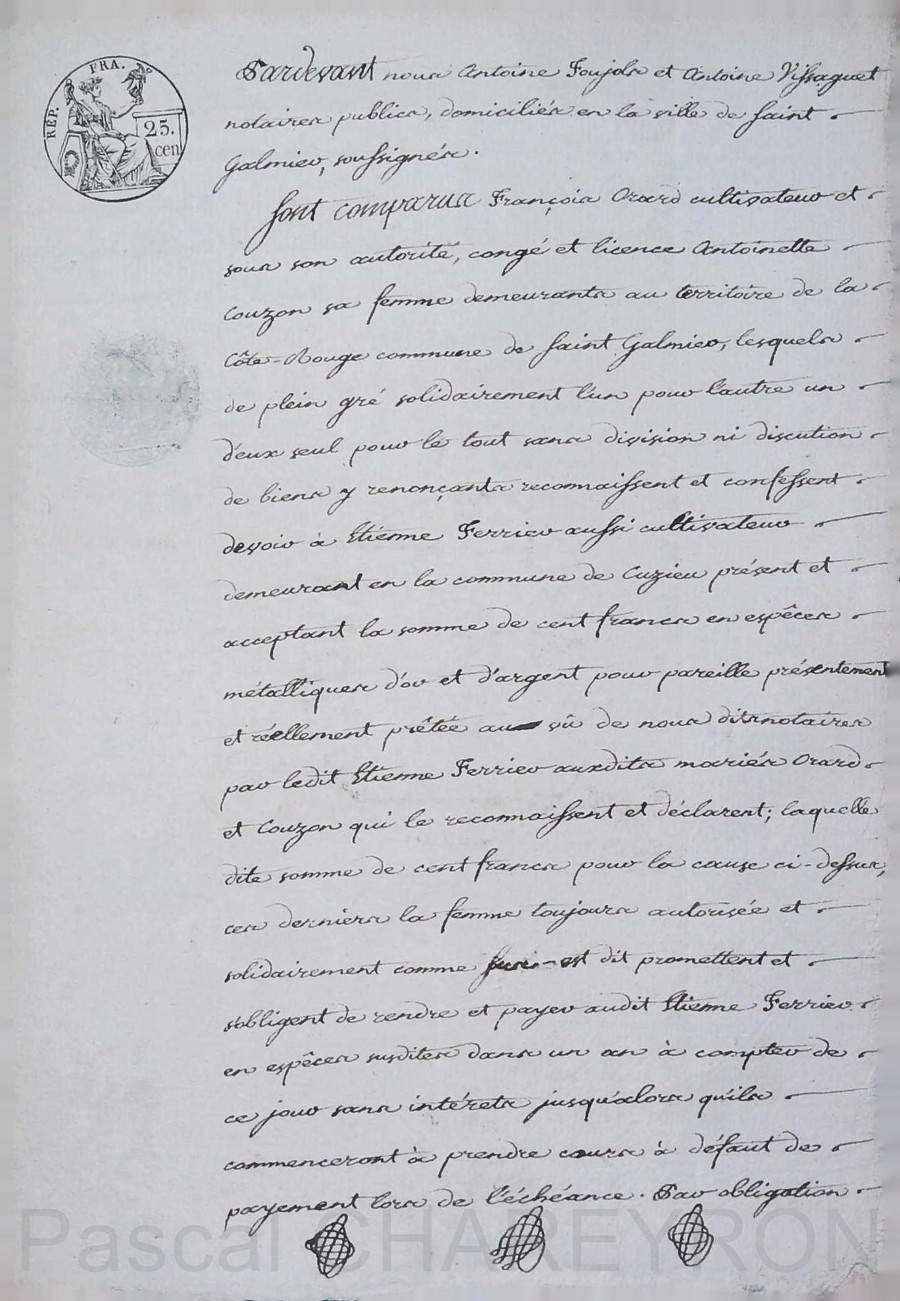 RÉP. FRA.
25.
cen
Pardevant nous Antoine Foujols et Antoine Vissaguet
notaires publics, domiciliés en la ville de saint
Galmier, soussignés.
Sont comparus François Orard cultivateur et
sous son autorité, congé et licence Antoinette
Couzon sa femme demeurants au territoire de la
Côte-Rouge commune de saint Galmier, lesquels
de plein gré solidairement l'un pour l'autre un
d'eux seul pour le tout sans division ni discution
de biens y renonçants reconnaissent et confessent
devoir à Etienne Ferrier aussi cultivateur
demeurant en la commune de Cuzieu présent et
acceptant la somme de cent francs en espêces
métalliques d'or et d'argent pour pareille présentement
et réellement prêtée au vû de nous dits notaires
par ledit Etienne Ferrier auxdits mariés Orard
et Couzon qui le reconnaissent et déclarent; laquelle
dite somme de cent francs pour la cause ci-dessus,
ces derniers la femme toujours autorisée et
solidairement comme est dit promettent et
s'obligent de rendre et payer audit Etienne Ferrier
en espêces susdites dans un an à compter de
ce jour sans intérets jusqu'alors qu'ils
commenceront à prendre cours à défaut de
payement lors de l'échéance. Par obligation
Pascal CHAREYRON